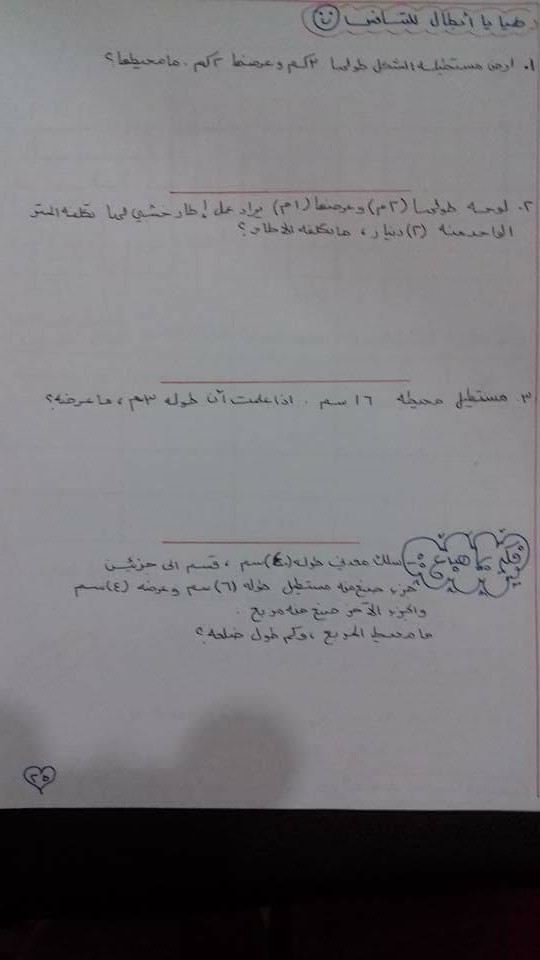 هيا يا أبطال للتنافس
١. ارض مستطيلة الشكل طولها ٣كم وعرضها ٢كم. ما محيطها؟
٢. لوحة طولها (٢م) وعرضها (١م) يراد عمل إطار خشبي لها تكلفة المتر
الواحد منه (٢) دينار، ما تكلفة الاطار؟
٣. مستطيل محيطه ١٦ سم. اذا علمت أن طوله ٣سم، ما عرضه؟
فكر يا مبدع
سلك معدني طوله (٤٠) سم، قسم الى جزئين
جزء صنع منه مستطيل طوله (٦) سم وعرضه (٤) سم
والجزء الآخر صنع منه مربع.
ما محيط المربع، وكم طول ضلعه؟
٢٥